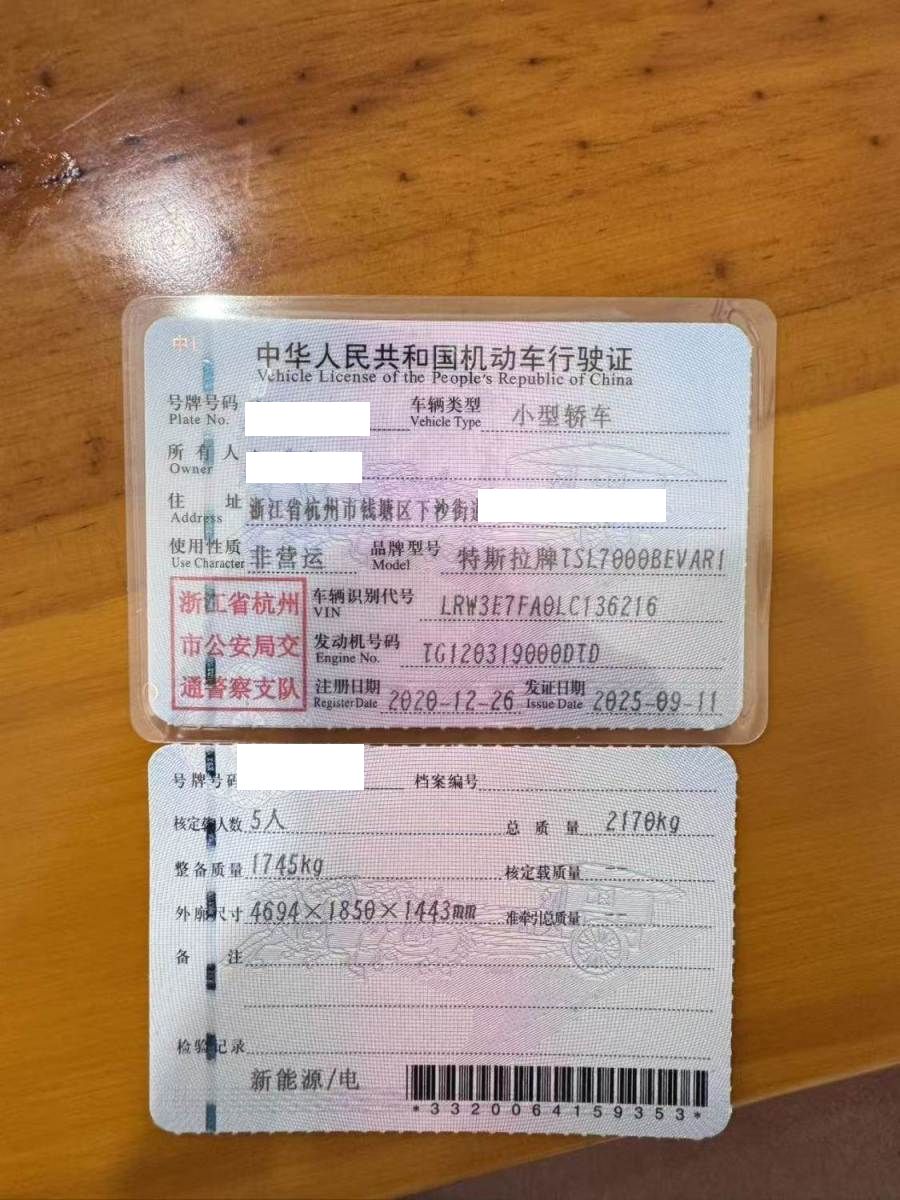 中华人民共和国机动车行驶证
Vehicle License of the People's Republic of China
号牌号码 Plate No. 车辆类型 Vehicle Type 小型轿车
所有人 Owner
住址 Address 浙江省杭州市钱塘区下沙街
使用性质 Use Character 非营运 品牌型号 Model 特斯拉牌TSL7000BEVAR1
浙江省杭州
市公安局交
通警察支队
车辆识别代号 VIN LRW3E7FA0LC136216
发动机号码 Engine No. TG120319000DTD
注册日期 Register Date 2020-12-26 发证日期 Issue Date 2025-09-11
号牌号码 档案编号
核定载人数 5人 总质量 2170kg
整备质量 1745kg 核定载质量 --
外廓尺寸 4694×1850×1443mm 准牵引总质量 --
备注
检验记录
新能源/电
*3320064159353*